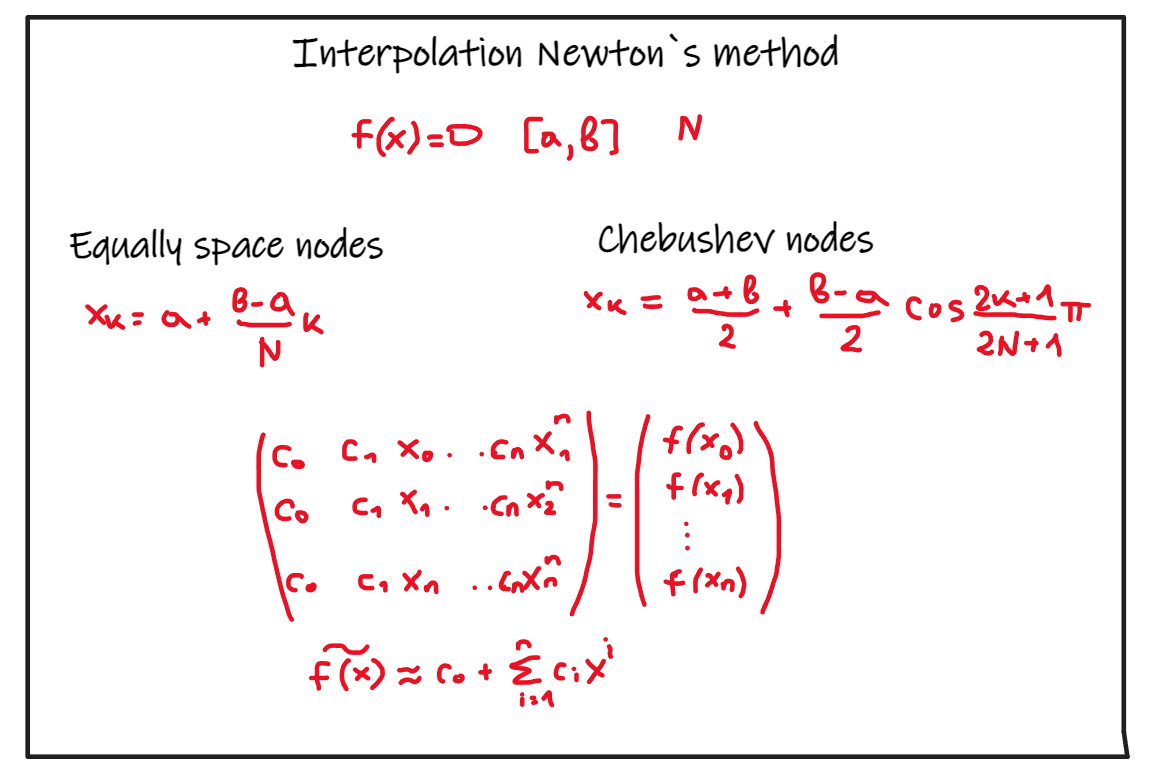 Interpolation Newton`s method
f(x)=0 [a,b] N
Equally space nodes
Chebushev nodes
xₖ = a + (b-a)/N k
xₖ = (a+b)/2 + (b-a)/2 cos (2k+1)/(2N+1) π
c₀ c₁ x₀ . . cₙ x₁ⁿ = f(x₀)
c₀ c₁ x₁ . . cₙ x₂ⁿ f(x₁)
⋮
c₀ c₁ xₙ . . cₙ xₙⁿ f(xₙ)
f̃(x) ≈ c₀ + ∑ⁿᵢ₌₁ cᵢ xⁱ